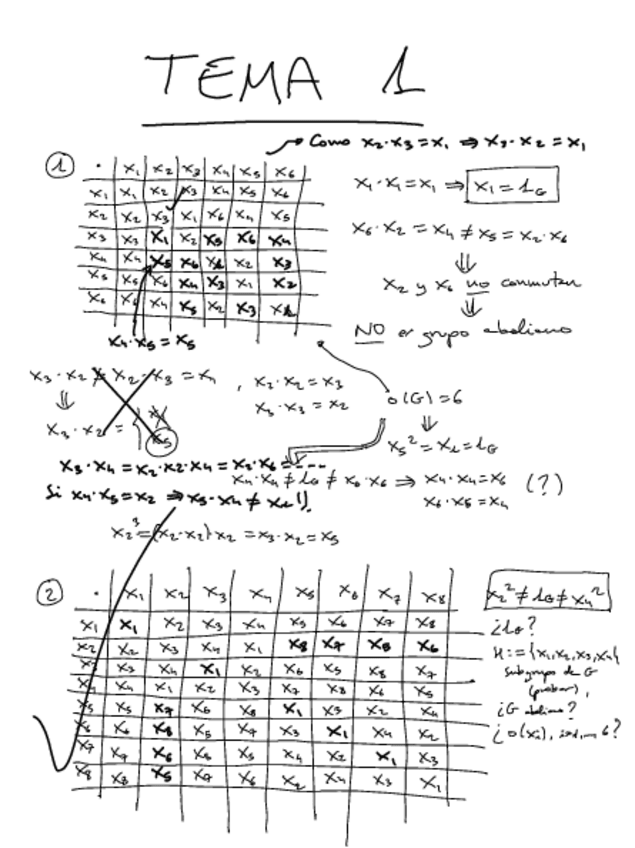 TEMA 1
Como x₂·x₃=x₁ ⇒ x₃·x₂=x₁
① · x₁ x₂ x₃ x₄ x₅ x₆
x₁ x₁ x₂ x₃ x₄ x₅ x₆
x₂ x₂ x₃ x₁ x₆ x₄ x₅
x₃ x₃ x₁ x₂ x₅ x₆ x₄
x₄ x₄ x₅ x₆ x₁ x₂ x₃
x₅ x₅ x₆ x₄ x₃ x₁ x₂
x₆ x₆ x₄ x₅ x₂ x₃ x₁
x₁·x₁=x₁ ⇒ x₁=1G
x₆·x₂=x₄≠x₅=x₂·x₆
⇓
x₂ y x₆ no conmutan
⇓
NO es grupo abeliano
x₄·x₅=x₅
x₃·x₂ ≠ x₂·x₃=x₁ , x₂·x₂=x₃
x₃·x₃=x₂
⇓
x₃·x₂=
o(G)=6
⇓
x₅²=x₁=1G
x₃·x₄=x₂·x₂·x₄=x₂·x₆=----
x₄·x₄≠1G≠x₆·x₆ ⇒ x₄·x₄=x₆ (?)
x₆·x₅=x₄
Si x₄·x₅=x₂ ⇒ x₅·x₄≠x₁!!
x₂³=(x₂·x₂)·x₂=x₃·x₂=x₅
② · x₁ x₂ x₃ x₄ x₅ x₆ x₇ x₈
x₁ x₁ x₂ x₃ x₄ x₅ x₆ x₇ x₈
x₂ x₂ x₃ x₄ x₁ x₈ x₇ x₅ x₆
x₃ x₃ x₄ x₁ x₂ x₆ x₅ x₈ x₇
x₄ x₄ x₁ x₂ x₃ x₇ x₈ x₆ x₅
x₅ x₅ x₇ x₆ x₈ x₁ x₃ x₂ x₄
x₆ x₆ x₈ x₅ x₇ x₃ x₁ x₄ x₂
x₇ x₇ x₆ x₈ x₅ x₄ x₂ x₁ x₃
x₈ x₈ x₅ x₇ x₆ x₂ x₄ x₃ x₁
x₂²≠1G≠x₄²
¿1G?
H:={x₁,x₂,x₃,x₄}
subgrupo de G
(probar),
¿G abeliano?